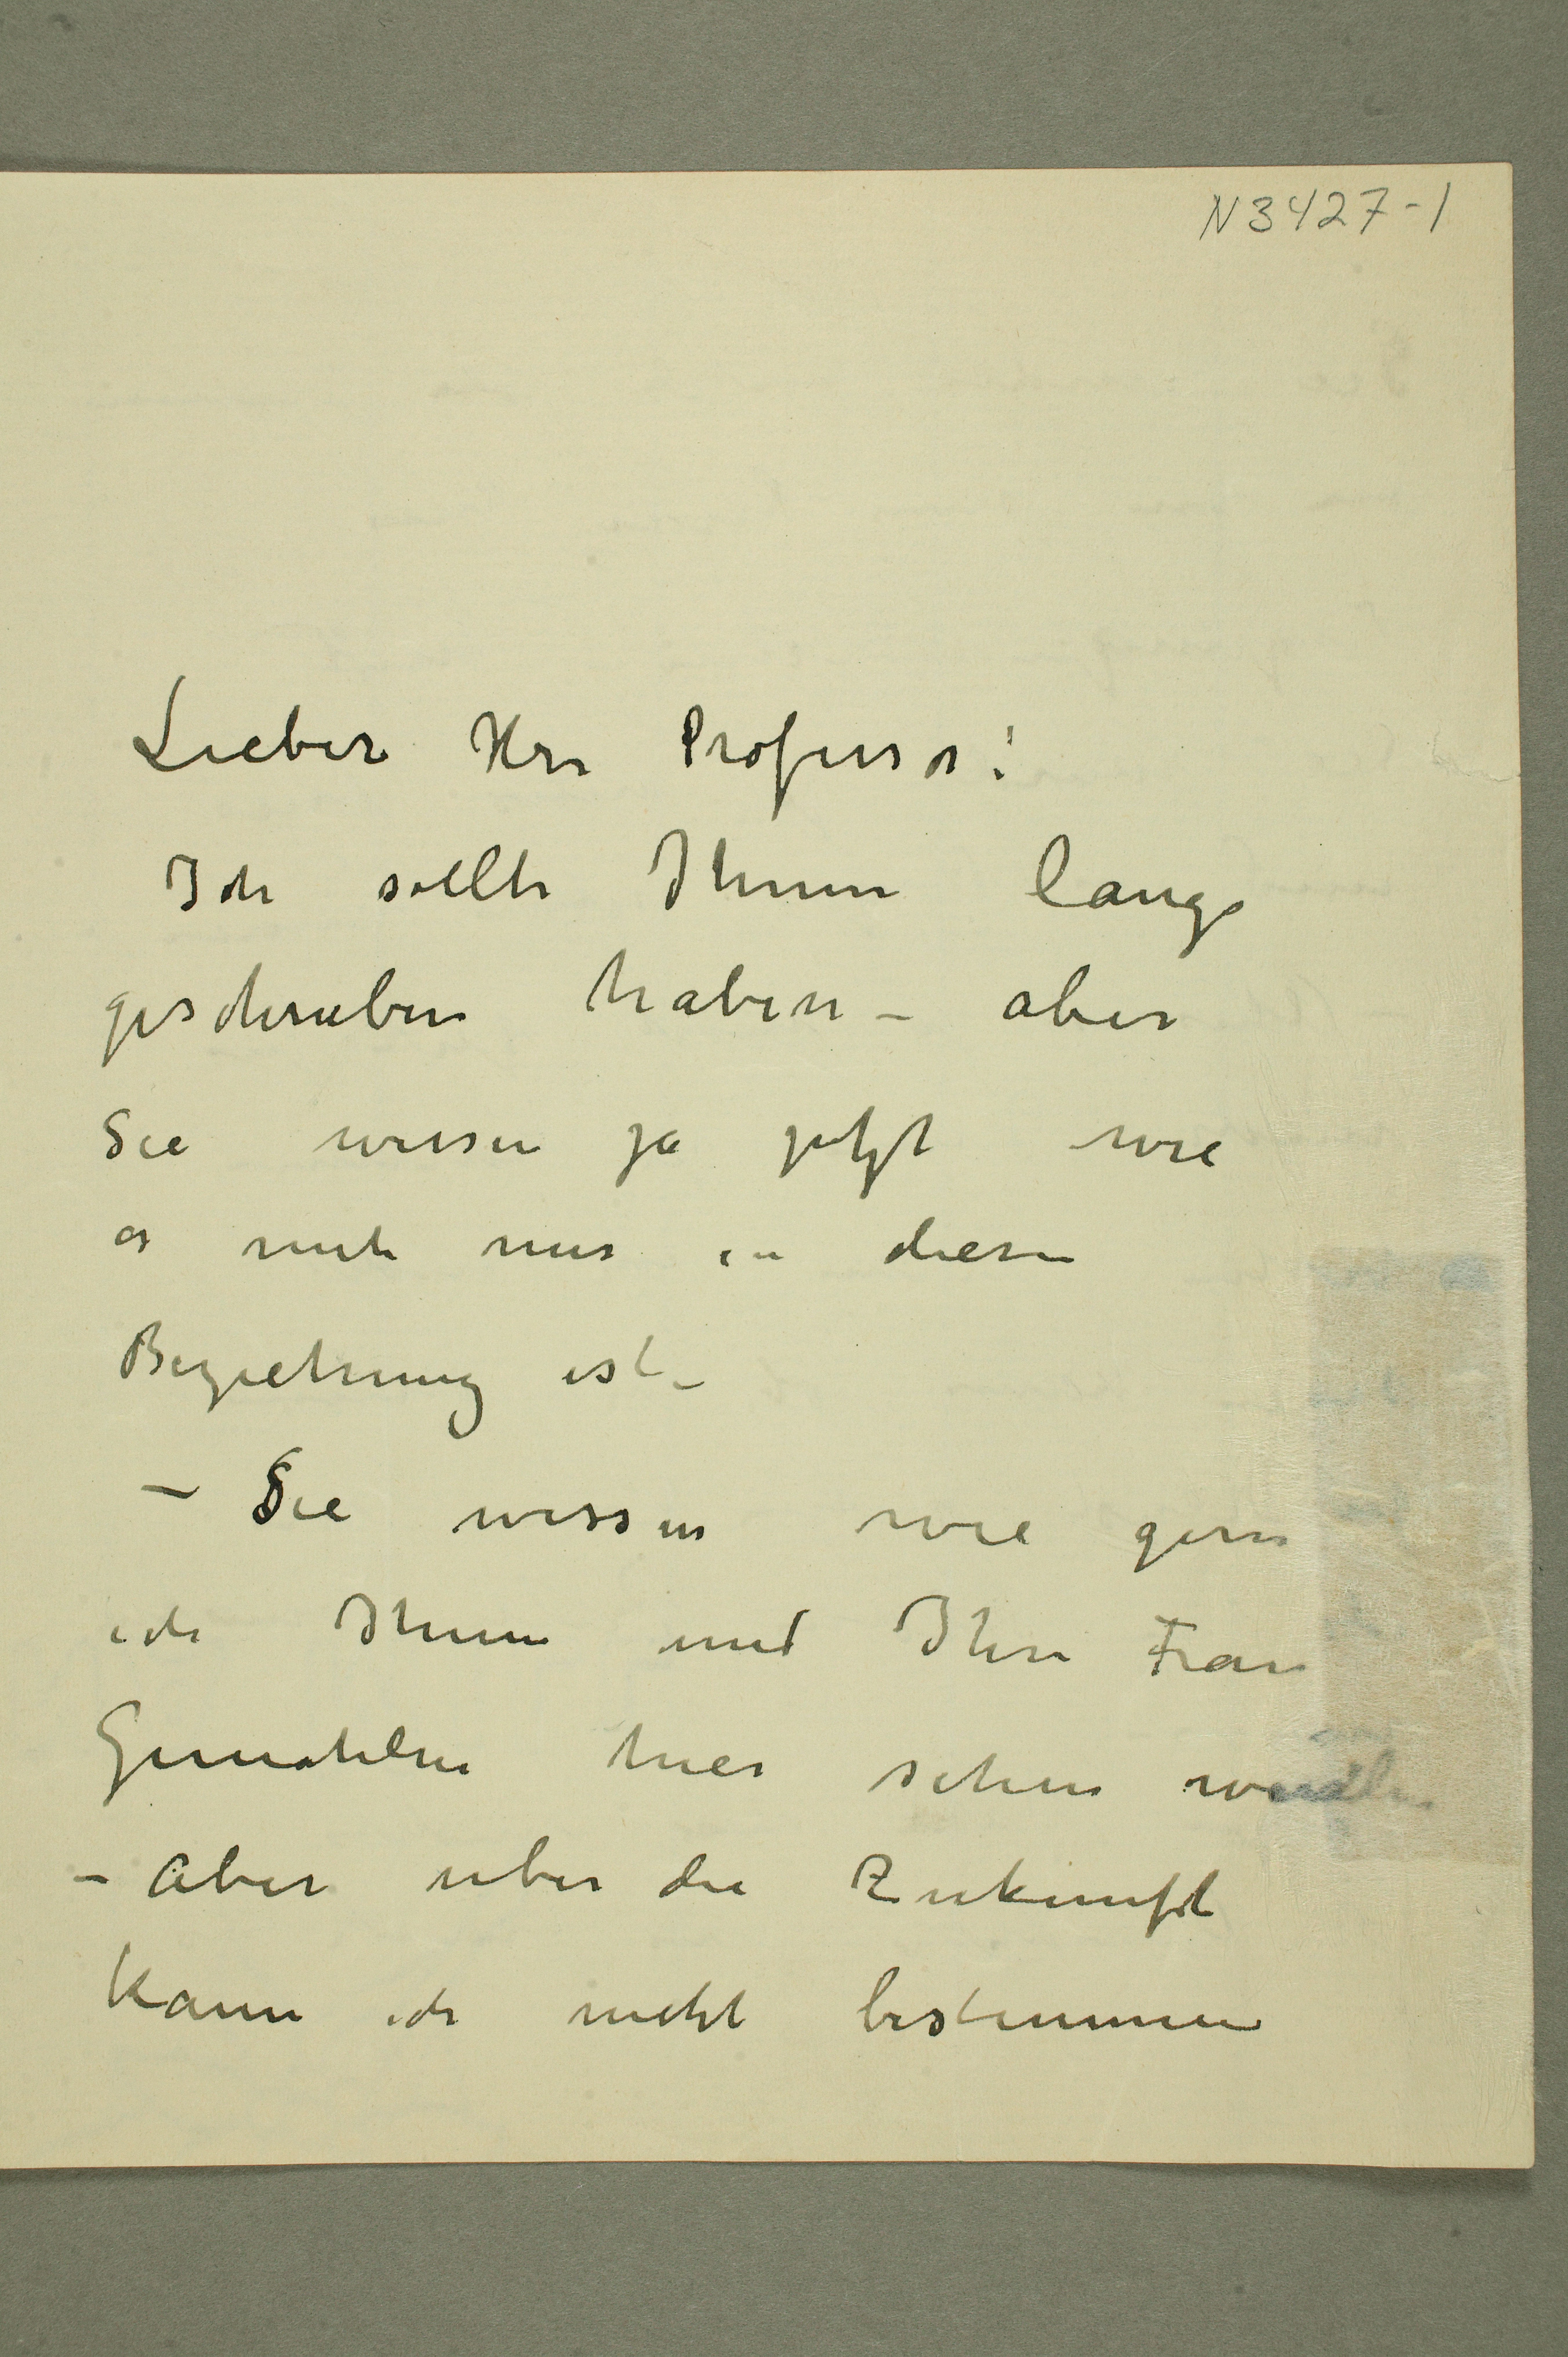 N 3427-1
Lieber Herr Professor!
Ich sollte Ihnen lange
geschrieben haben – aber
Sie wissen ja jetzt wie
es mit mir in dieser
Beziehung ist –
– Sie wissen wie gern
ich Ihnen und Ihre Frau
Gemahlin hier sehen
– Aber uber die Zukunft
kann ich nicht bestimmen